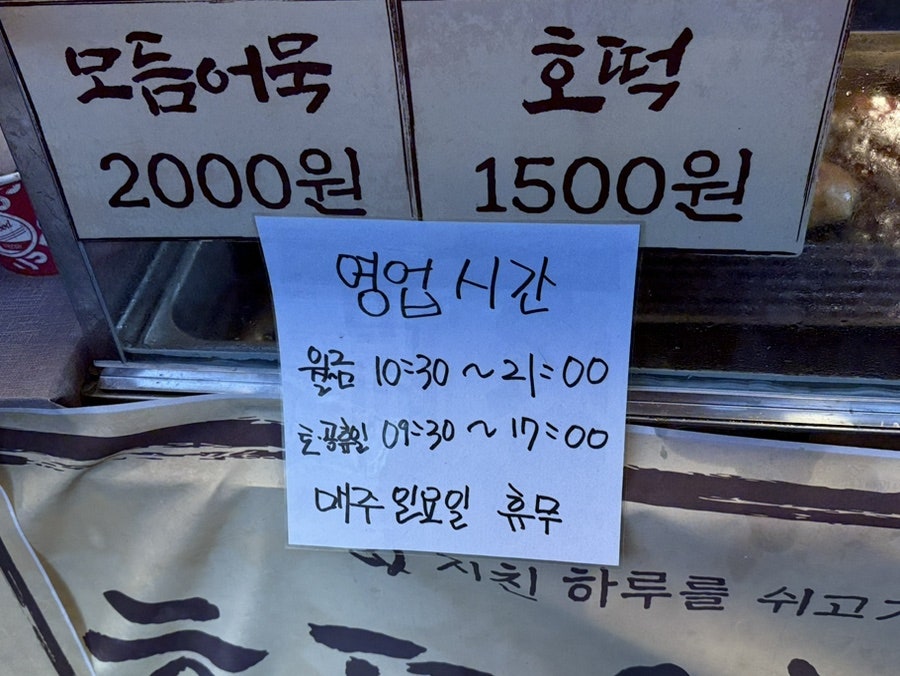 모듬어묵
2000원
호떡
1500원
영업시간
월금 10:30 ~ 21:00
토·공휴일 09:30 ~ 17:00
매주 일요일 휴무
지친 하루를 쉬고